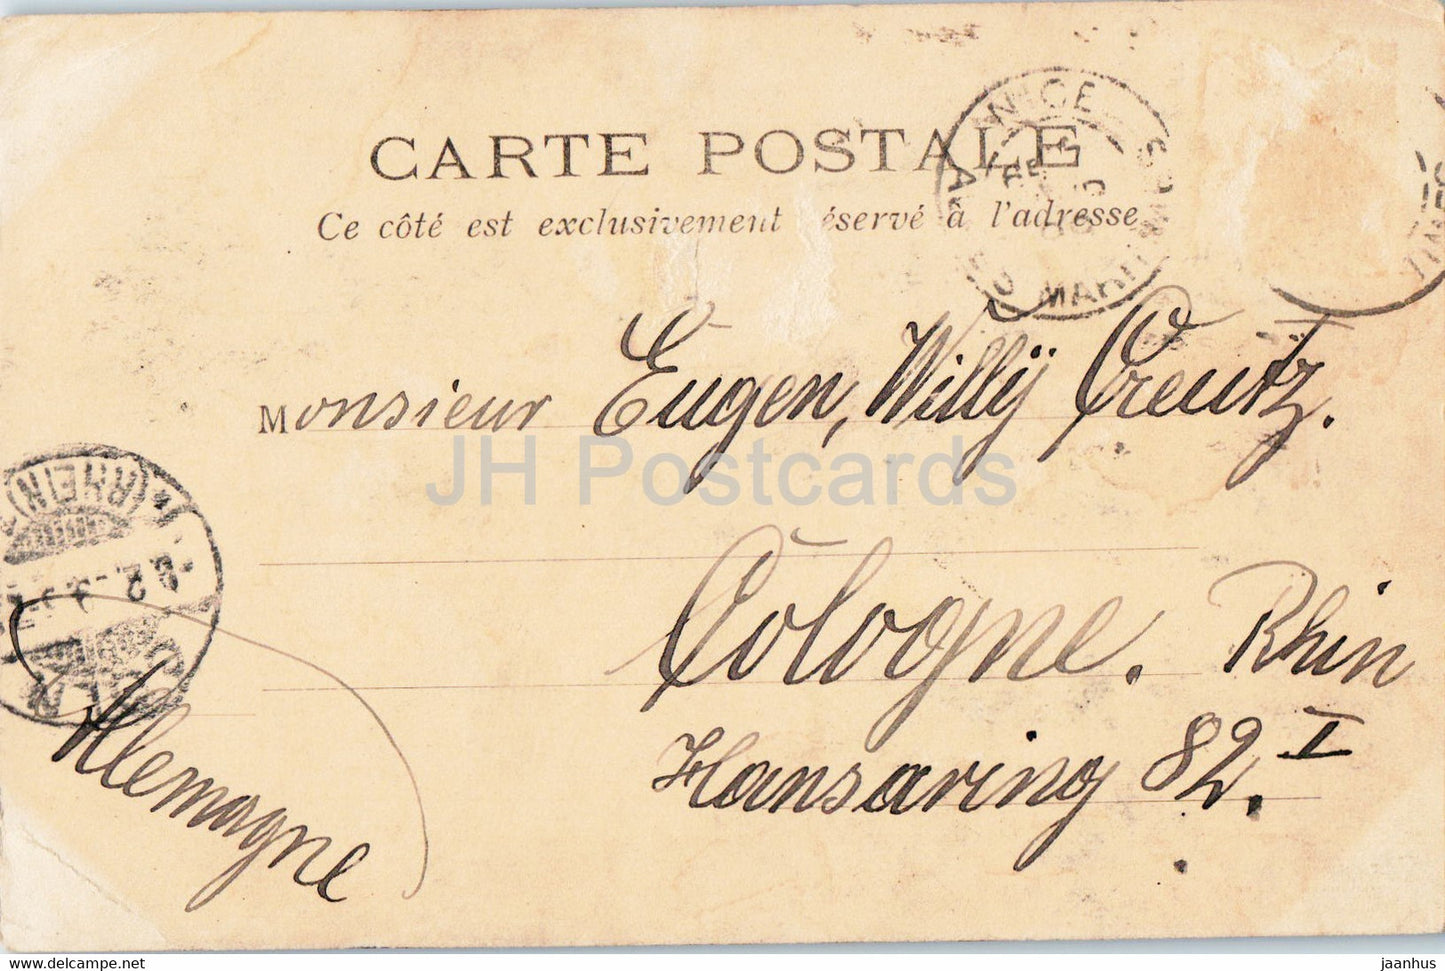 CARTE POSTALE
Ce côté est exclusivement réservé à l'adresse
NICE
ALPES MARIT
Monsieur Eugen, Willÿ Creutz.
JH Postcards
(RHEIN)
Cologne. Rhin
Hansaring 82. I
Allemagne
www.jh-cards.net
jaanhus